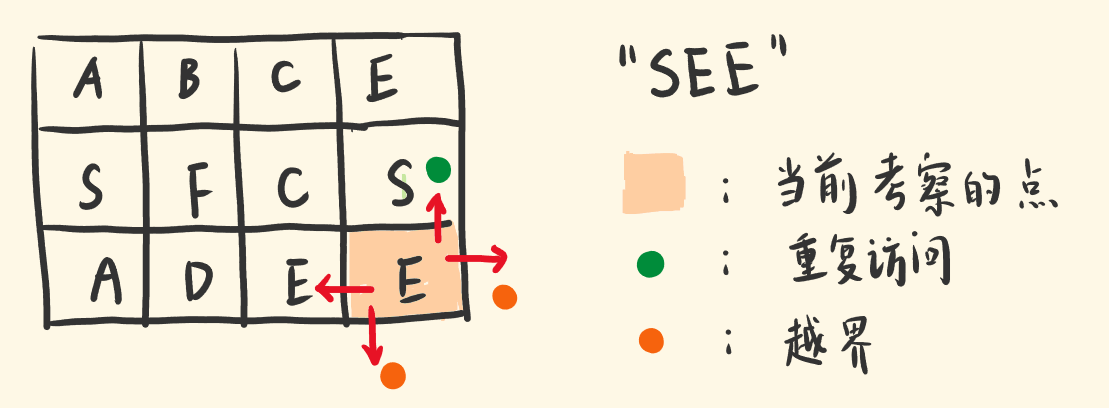 A B C E
S F C S
A D E E
"SEE"
: 当前考察的点
: 重复访问
: 越界